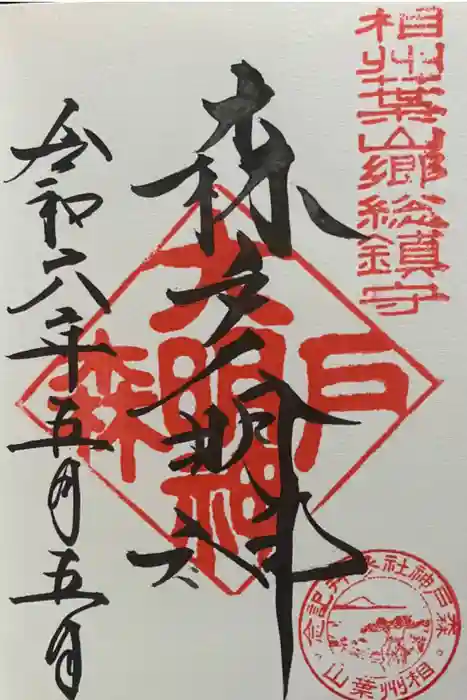 相州葉山郷総鎮守
森戸大明神
令和六年五月五日
森戸
大明神
森戸神社参拝記念
相州葉山